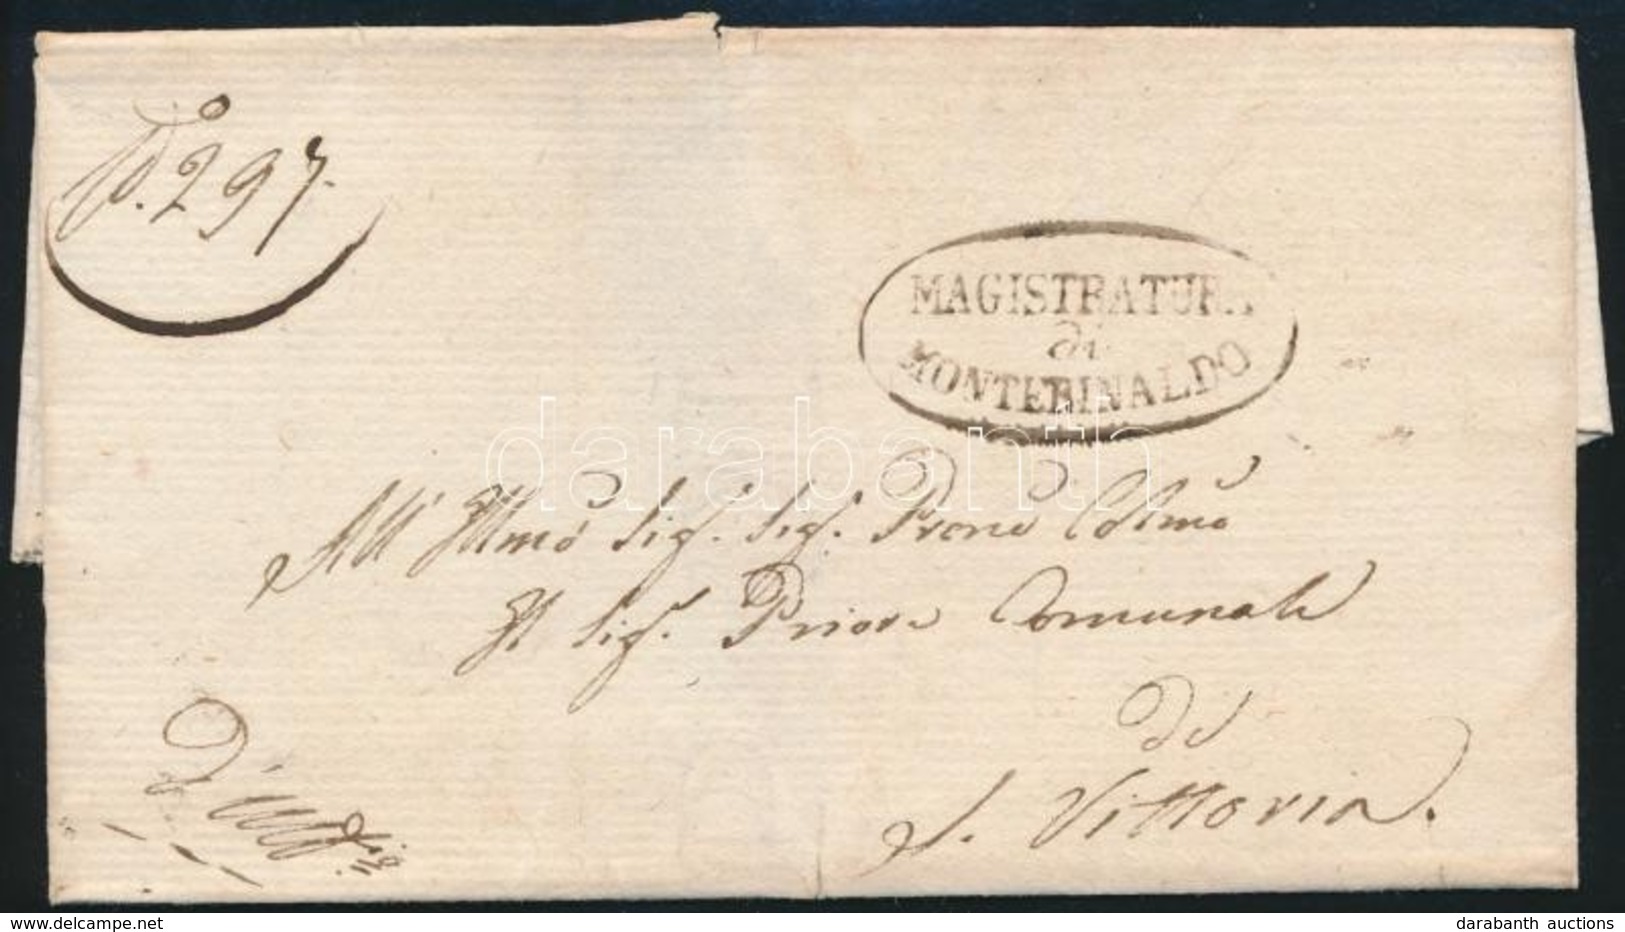 P. 297.
MAGISTRATURA
di
MONTERINALDO
darabanth
All' Illmo Sig. Sig. Prone Colmo
Il Sig. Priore Comunale
di
S. Vittoria.
delcampe.net
darabanth auctions